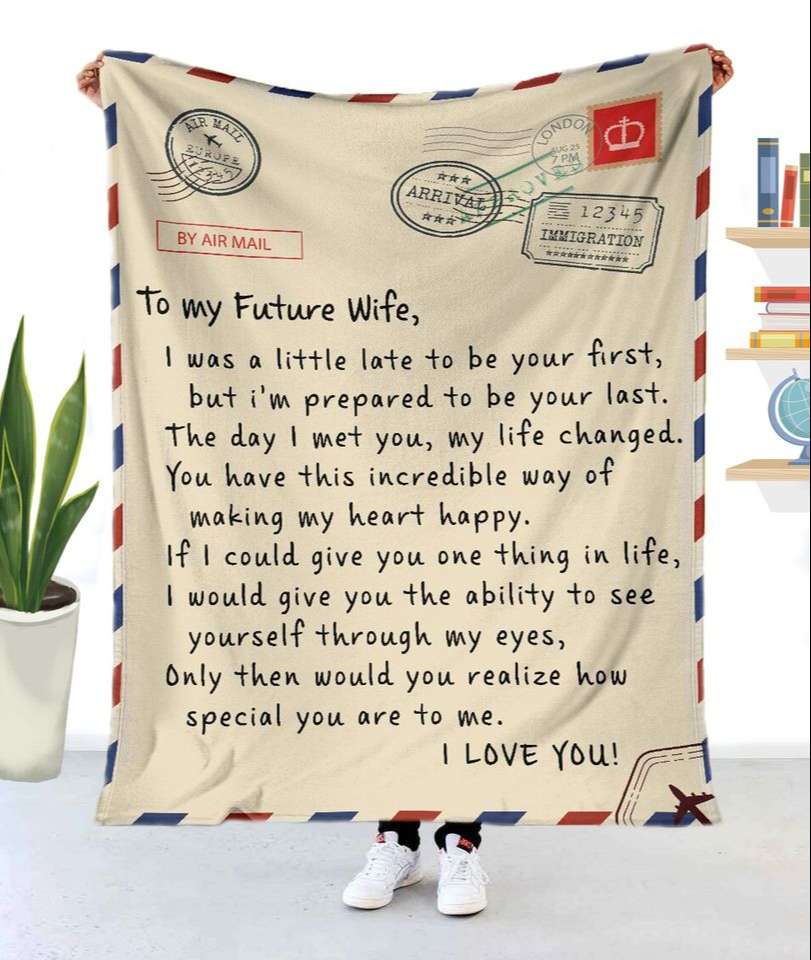 AIR MAIL
EUROPE
12345
BY AIR MAIL
LONDON
AUG 25
7 PM
ARRIVAL
12345
IMMIGRATION
To my Future Wife,
I was a little late to be your first,
but i'm prepared to be your last.
The day I met you, my life changed.
You have this incredible way of
making my heart happy.
If I could give you one thing in life,
I would give you the ability to see
yourself through my eyes,
Only then would you realize how
special you are to me.
I LOVE YOU!